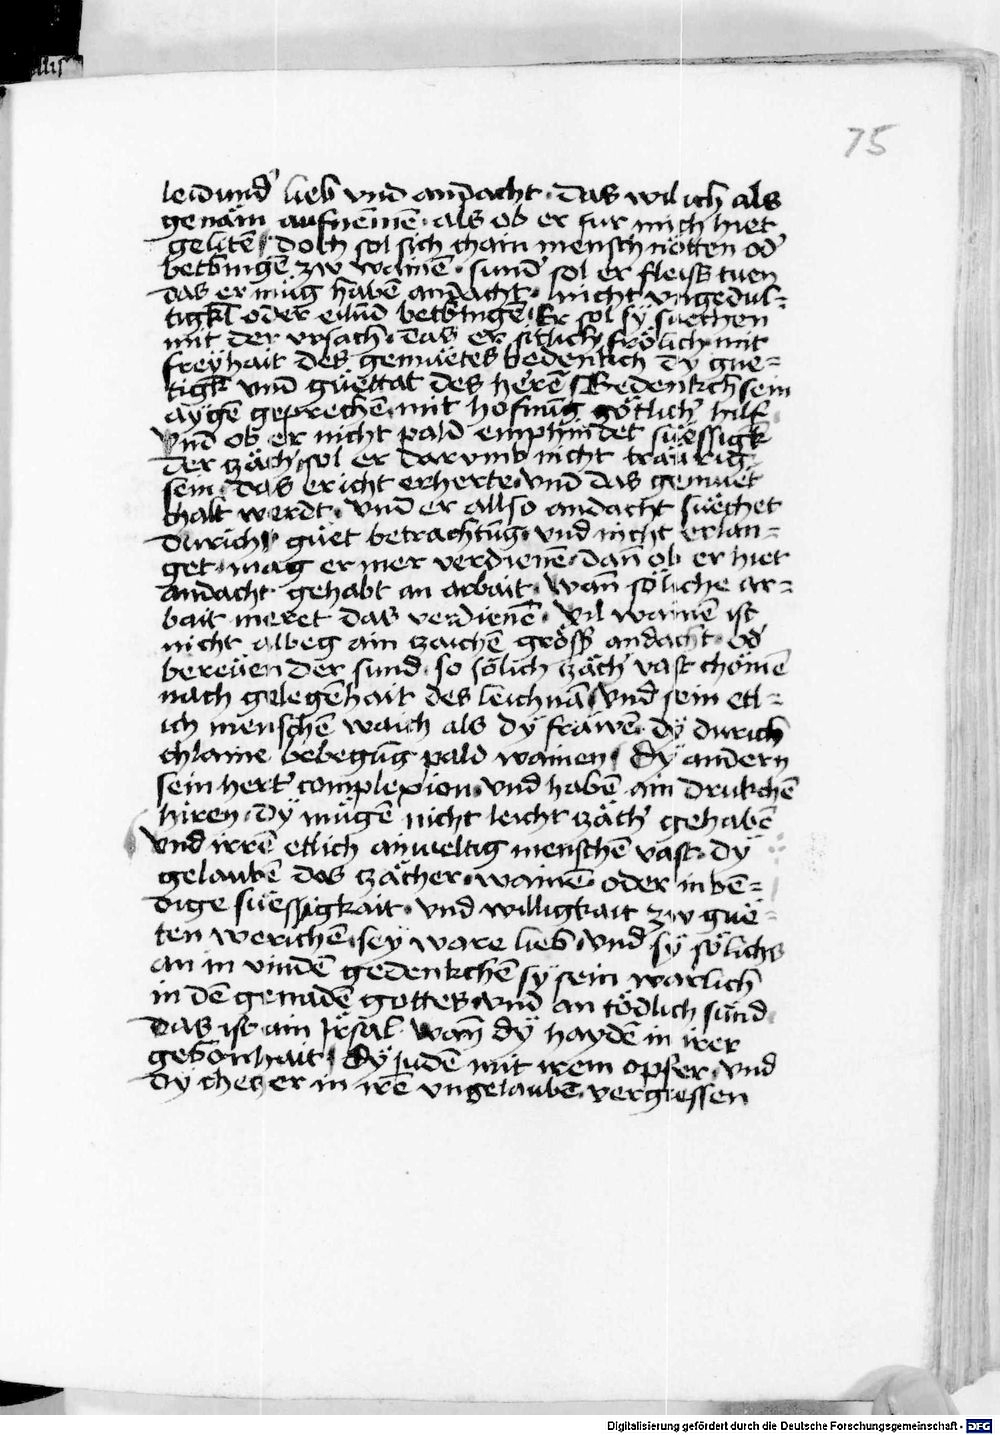 75
leidund' lieb vnd andacht · das wil ich als
genäm aufnemēn · als ob er fur mich hiet
geliten · doch sol sich chain mensch nötten od'
betbingē zw wainē · sund' sol er fleiss tuen
das er müg habē andacht · nicht vngedul=
tigkl oder eilūd betbingē · Er sol sy suechen
mit der vrsach · das er sitlich frölich mit
freyhait des gemuetes bedenkch dy gue=
tigk vnd guettat des herē Bedenkch sein
aygē geprechē mit hofnūg götlich' hilf
vnd ob er nicht pald emphindet süessigk
der zäch' sol er darumb nicht traurig
sein · das er icht erherte vnd das gemuet
chalt werdt · vnd er allso andacht suechet
durich guet betrachtūg · vnd nicht erlan=
get · mag er mer verdienē · dan ob er hiet
andacht gehabt an arbait · wan söliche ar=
bait meret das verdienē · vil wainē ist
nicht albeg ain zaichē gröss' andacht · od'
bereüen der sund · so sölich zäch' vast chömē
nach gelegēhait des leichnā vnd sein etl=
ich menschē waich als dy frawē · dy durich
chlaine bebegūg pald wainen · dy andern
sein hert' complexion · vnd habē ain drukchē
hiren · dy mügē nicht leicht zäch' gehabē
vnd irrē etlich ainueltig menschē vast · dy
gelaubē das zächer · wainē · oder inbē=
dige süessigkait · vnd willigkait zw gue=
ten werichē · sey ware lieb · vnd sy sölichs
an in vindē gedenkchē sy sein warlich
in dē genadē gottes vnd an tödlich sünd
das ist ain irsal · wan dy haydē in irer
gebonhait · dy judē mit irem opfer · vnd
dy chetzer in irē vngelaubē · vergiessen
Digitalisierung gefördert durch die Deutsche Forschungsgemeinschaft - DFG